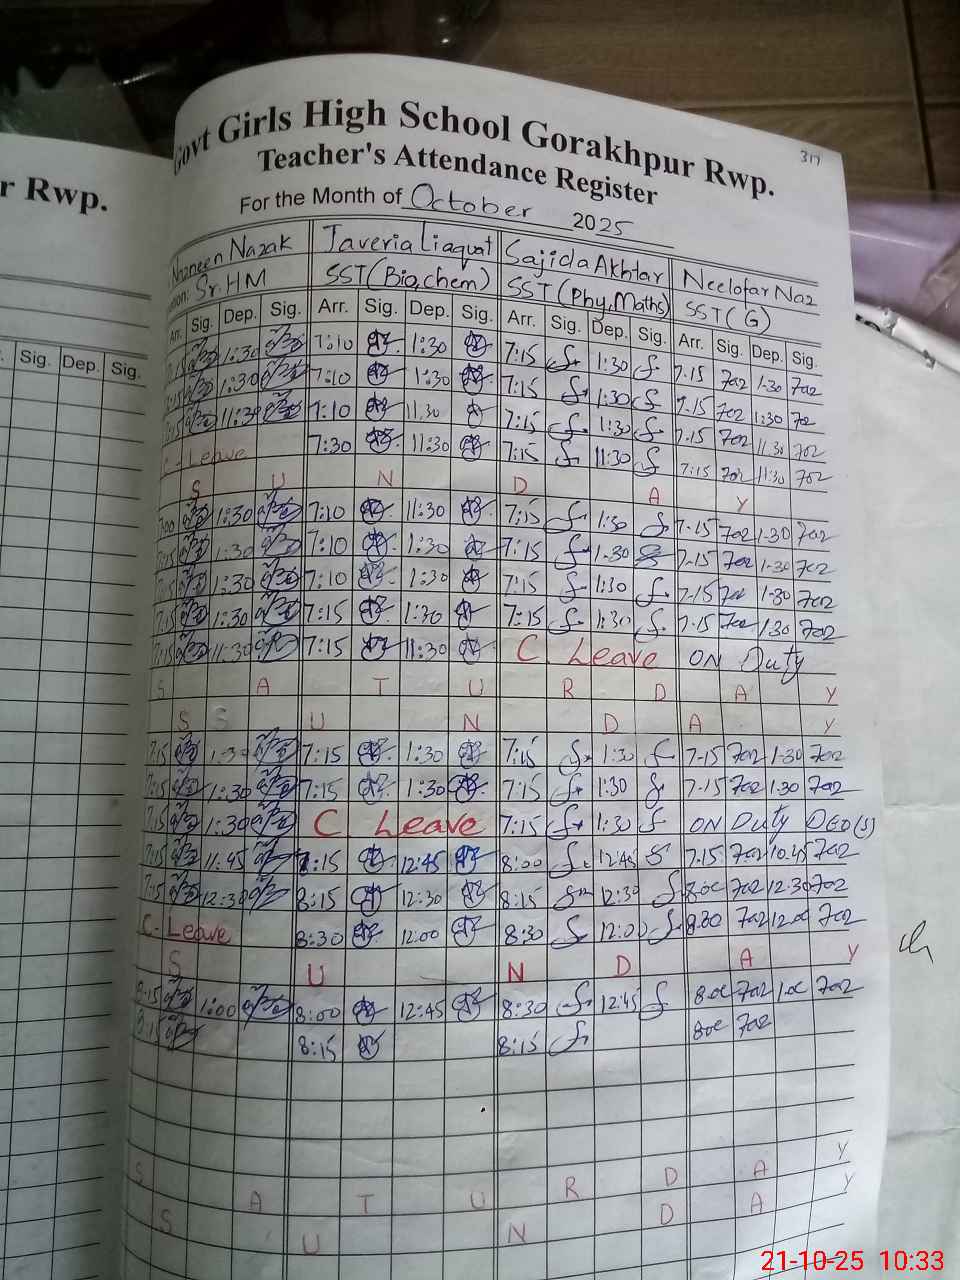 317
Govt Girls High School Gorakhpur Rwp.
r Rwp.
Teacher's Attendance Register
For the Month of October 2025
Nazneen Nazak Javeria Liaquat Sajida Akhtar Neelofar Naz
Sr. HM SST (Bio,chem) SST (Phy,Maths) SST (G)
Sig. Dep. Sig.
Arr. Sig. Dep. Sig. Arr. Sig. Dep. Sig. Arr. Sig. Dep. Sig. Arr. Sig. Dep. Sig.
1:30 7:10 1:30 7:15 1:30 7-15 1-30
1:30 7:10 1:30 7:15 1:30 7-15 1:30
11:30 7:10 11:30 7:15 1:30 7-15 11:30
C. Leave 7:30 11:30 7:15 11:30 7:15 11:30
S U N D A Y
7:00 1:30 7:10 11:30 7:15 1:30 7-15 1-30
7:15 1:30 7:10 1:30 7:15 1-30 7-15 1-30
7:15 1:30 7:10 1:30 7:15 1:30 7-15 1-30
7:15 1:30 7:15 1:30 7:15 1:30 7-15 1:30
7:15 11:30 7:15 11:30 C. Leave ON Duty
S A T U R D A Y
S U N D A Y
7:15 1:30 7:15 1:30 7:15 1:30 7-15 1-30
7:15 1:30 7:15 1:30 7:15 1:30 7-15 1-30
7:15 1:30 C. Leave 7:15 1:30 ON Duty DEO(S)
7:15 11:45 7:15 12:45 8:00 12:45 7-15 10.45
7:15 12:30 8:15 12:30 8:15 12:30 8.00 12.30
C. Leave 8:30 12:00 8:30 12:00 8.30 12.00
S U N D A Y
8:15 1:00 8:00 12:45 8:30 12:45 8.00 1.00
8:15 8:15 8:15 8.00
S A T U R D A Y
S U N D A Y
21-10-25 10:33